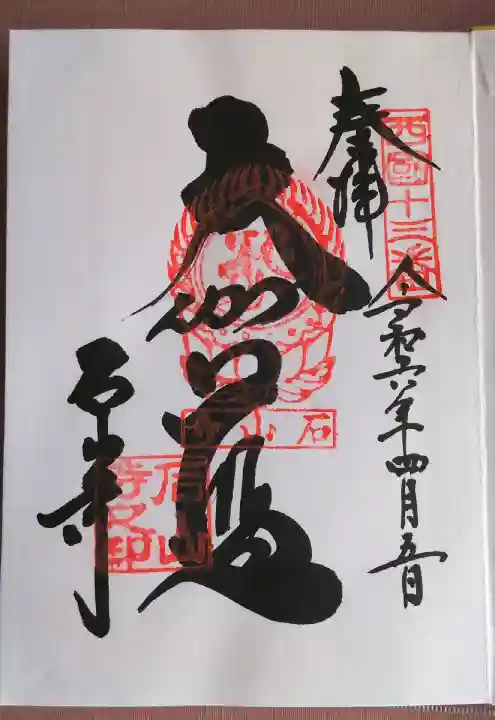 奉拝
西国十三番
令和六年四月五日
大伽藍
石山寺
石山寺
石山寺之印